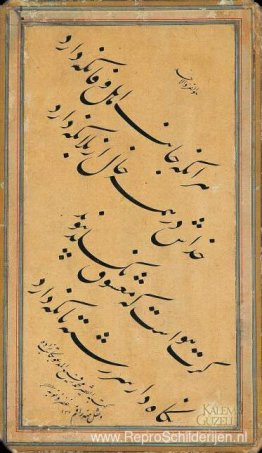 هر آنکه جانب اهل وفا نگه دارد
خداش در همه حال از بلا نگه دارد
گرت هواست که معشوق نگسلد پیوند
نگاه دار سر رشته تا نگه دارد
KALEM
GÜZELİ
© www.ReproSchilderijen.nl